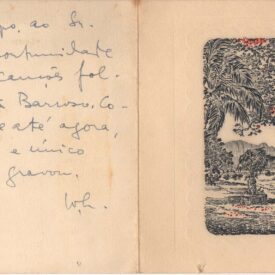 po, ao Sr.
portunidade
canções fol-
Barroso. Co-
e até agora,
e único
gravou.
Wh.